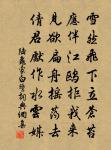 雪然飛下立蒼苔
應伴江鷗拒我來
見欲扁舟搖蕩去
倩君獻作水雲媒
陸龜蒙白鷺詞與烟美